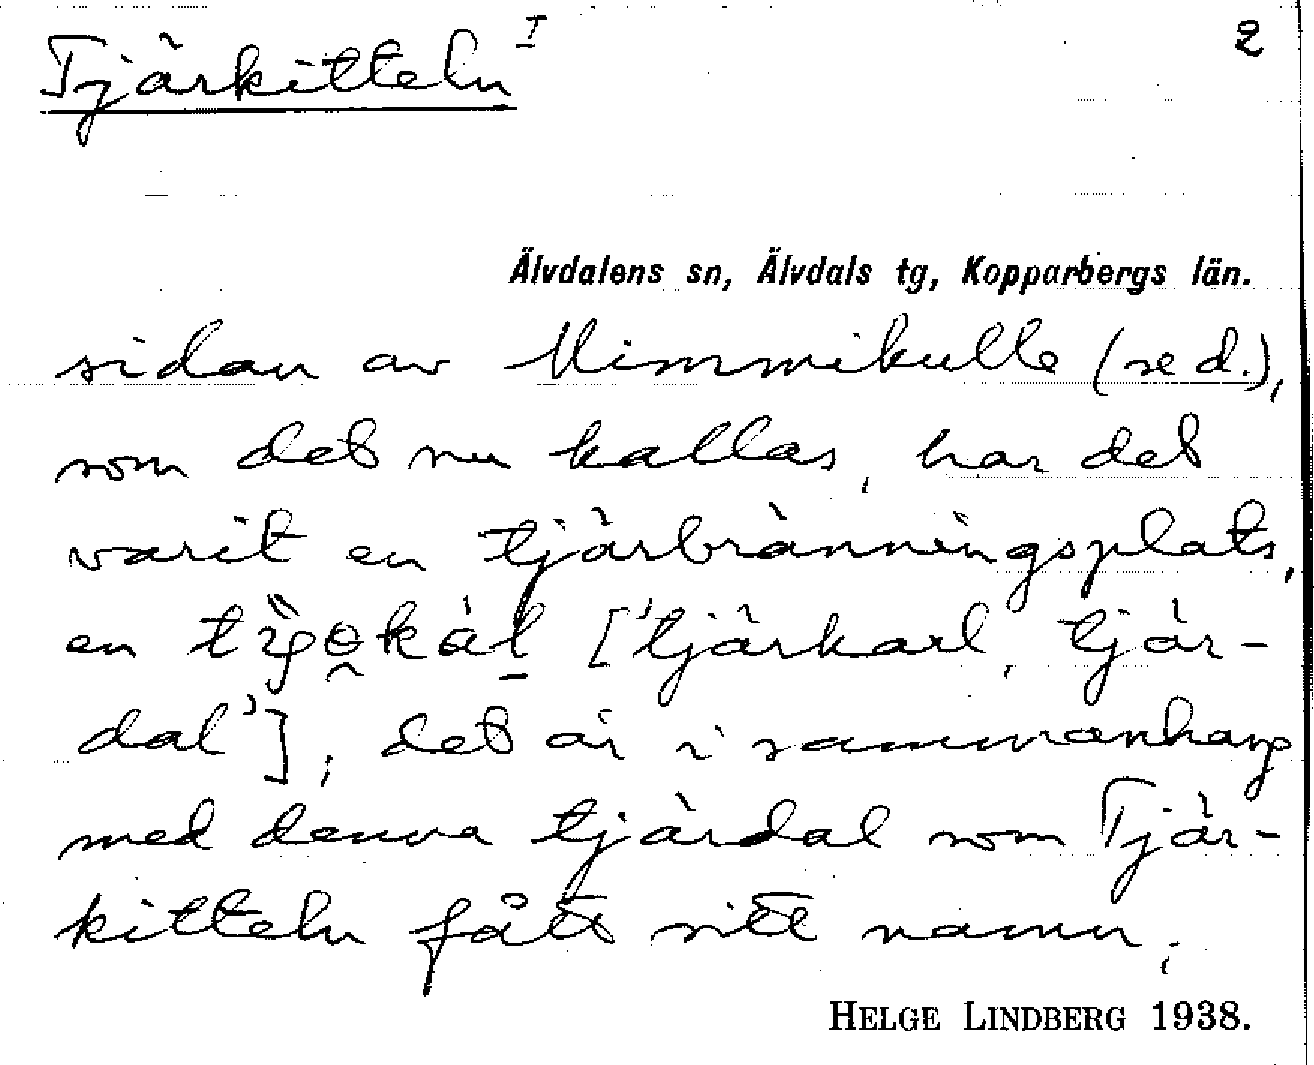 Tjärkitteln I 2
Älvdalens sn, Älvdals tg, Kopparbergs län.
sidan av Mimmikulle (se d.),
som det nu kallas, har det
varit en tjärbränningsplats,
en ['tjärkarl, tjär-
dal'], det är i sammanhang
med denna tjärdal som Tjär-
kitteln fått sitt namn;
HELGE LINDBERG 1938.